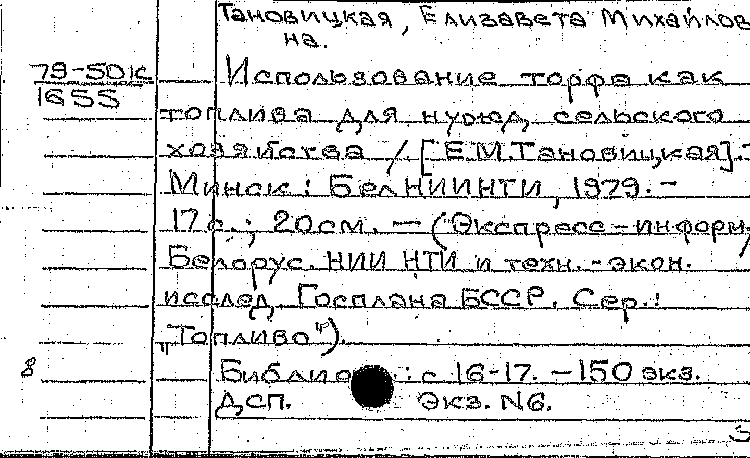 Тановицкая, Елизавета Михайлов
на.
79-50к
1655
Использование торфа как
топлива для нужд сельского
хозяйства / [Е.М.Тановицкая].-
Минск: БелНИИНТИ, 1979.-
17 с.; 20см. — (Экспресс-информ./
Белорус. НИИ НТИ и техн.-экон.
исслед. Госплана БССР. Сер.:
"Топливо").
с 16-17. - 150 экз.
ДСП. Экз. N6.